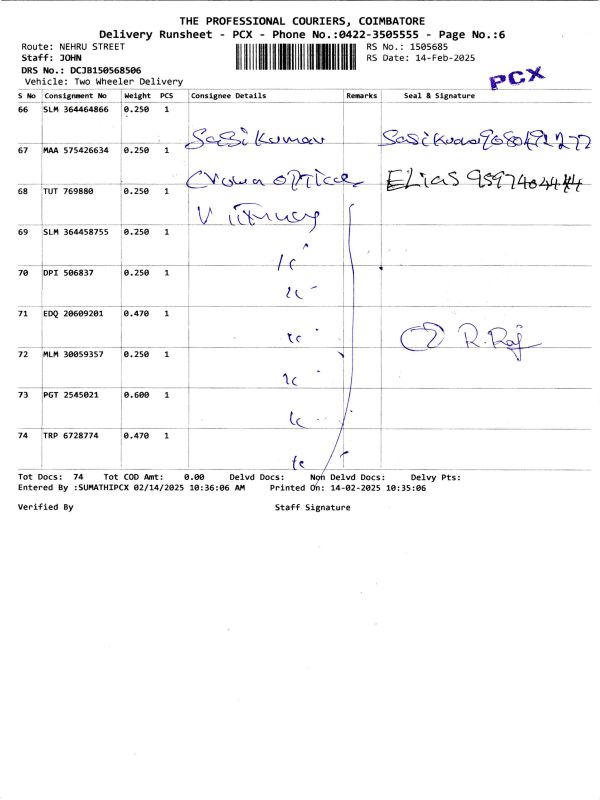 THE PROFESSIONAL COURIERS, COIMBATORE
Delivery Runsheet - PCX - Phone No.:0422-3505555 - Page No.:6
Route: NEHRU STREET RS No.: 1505685
Staff: JOHN RS Date: 14-Feb-2025
DRS No.: DCJB150568506
Vehicle: Two Wheeler Delivery
PCX
S No Consignment No Weight PCS Consignee Details Remarks Seal & Signature
66 SLM 364464866 0.250 1
Sasikumar Sasikumar
67 MAA 575426634 0.250 1
Crown optical ELias
68 TUT 769880 0.250 1
69 SLM 364458755 0.250 1
70 DPI 506837 0.250 1
71 EDQ 20609201 0.470 1
R.Raj
72 MLM 30059357 0.250 1
73 PGT 2545021 0.600 1
74 TRP 6728774 0.470 1
Tot Docs: 74 Tot COD Amt: 0.00 Delvd Docs: Non Delvd Docs: Delvy Pts:
Entered By :SUMATHIPCX 02/14/2025 10:36:06 AM Printed On: 14-02-2025 10:35:06
Verified By Staff Signature